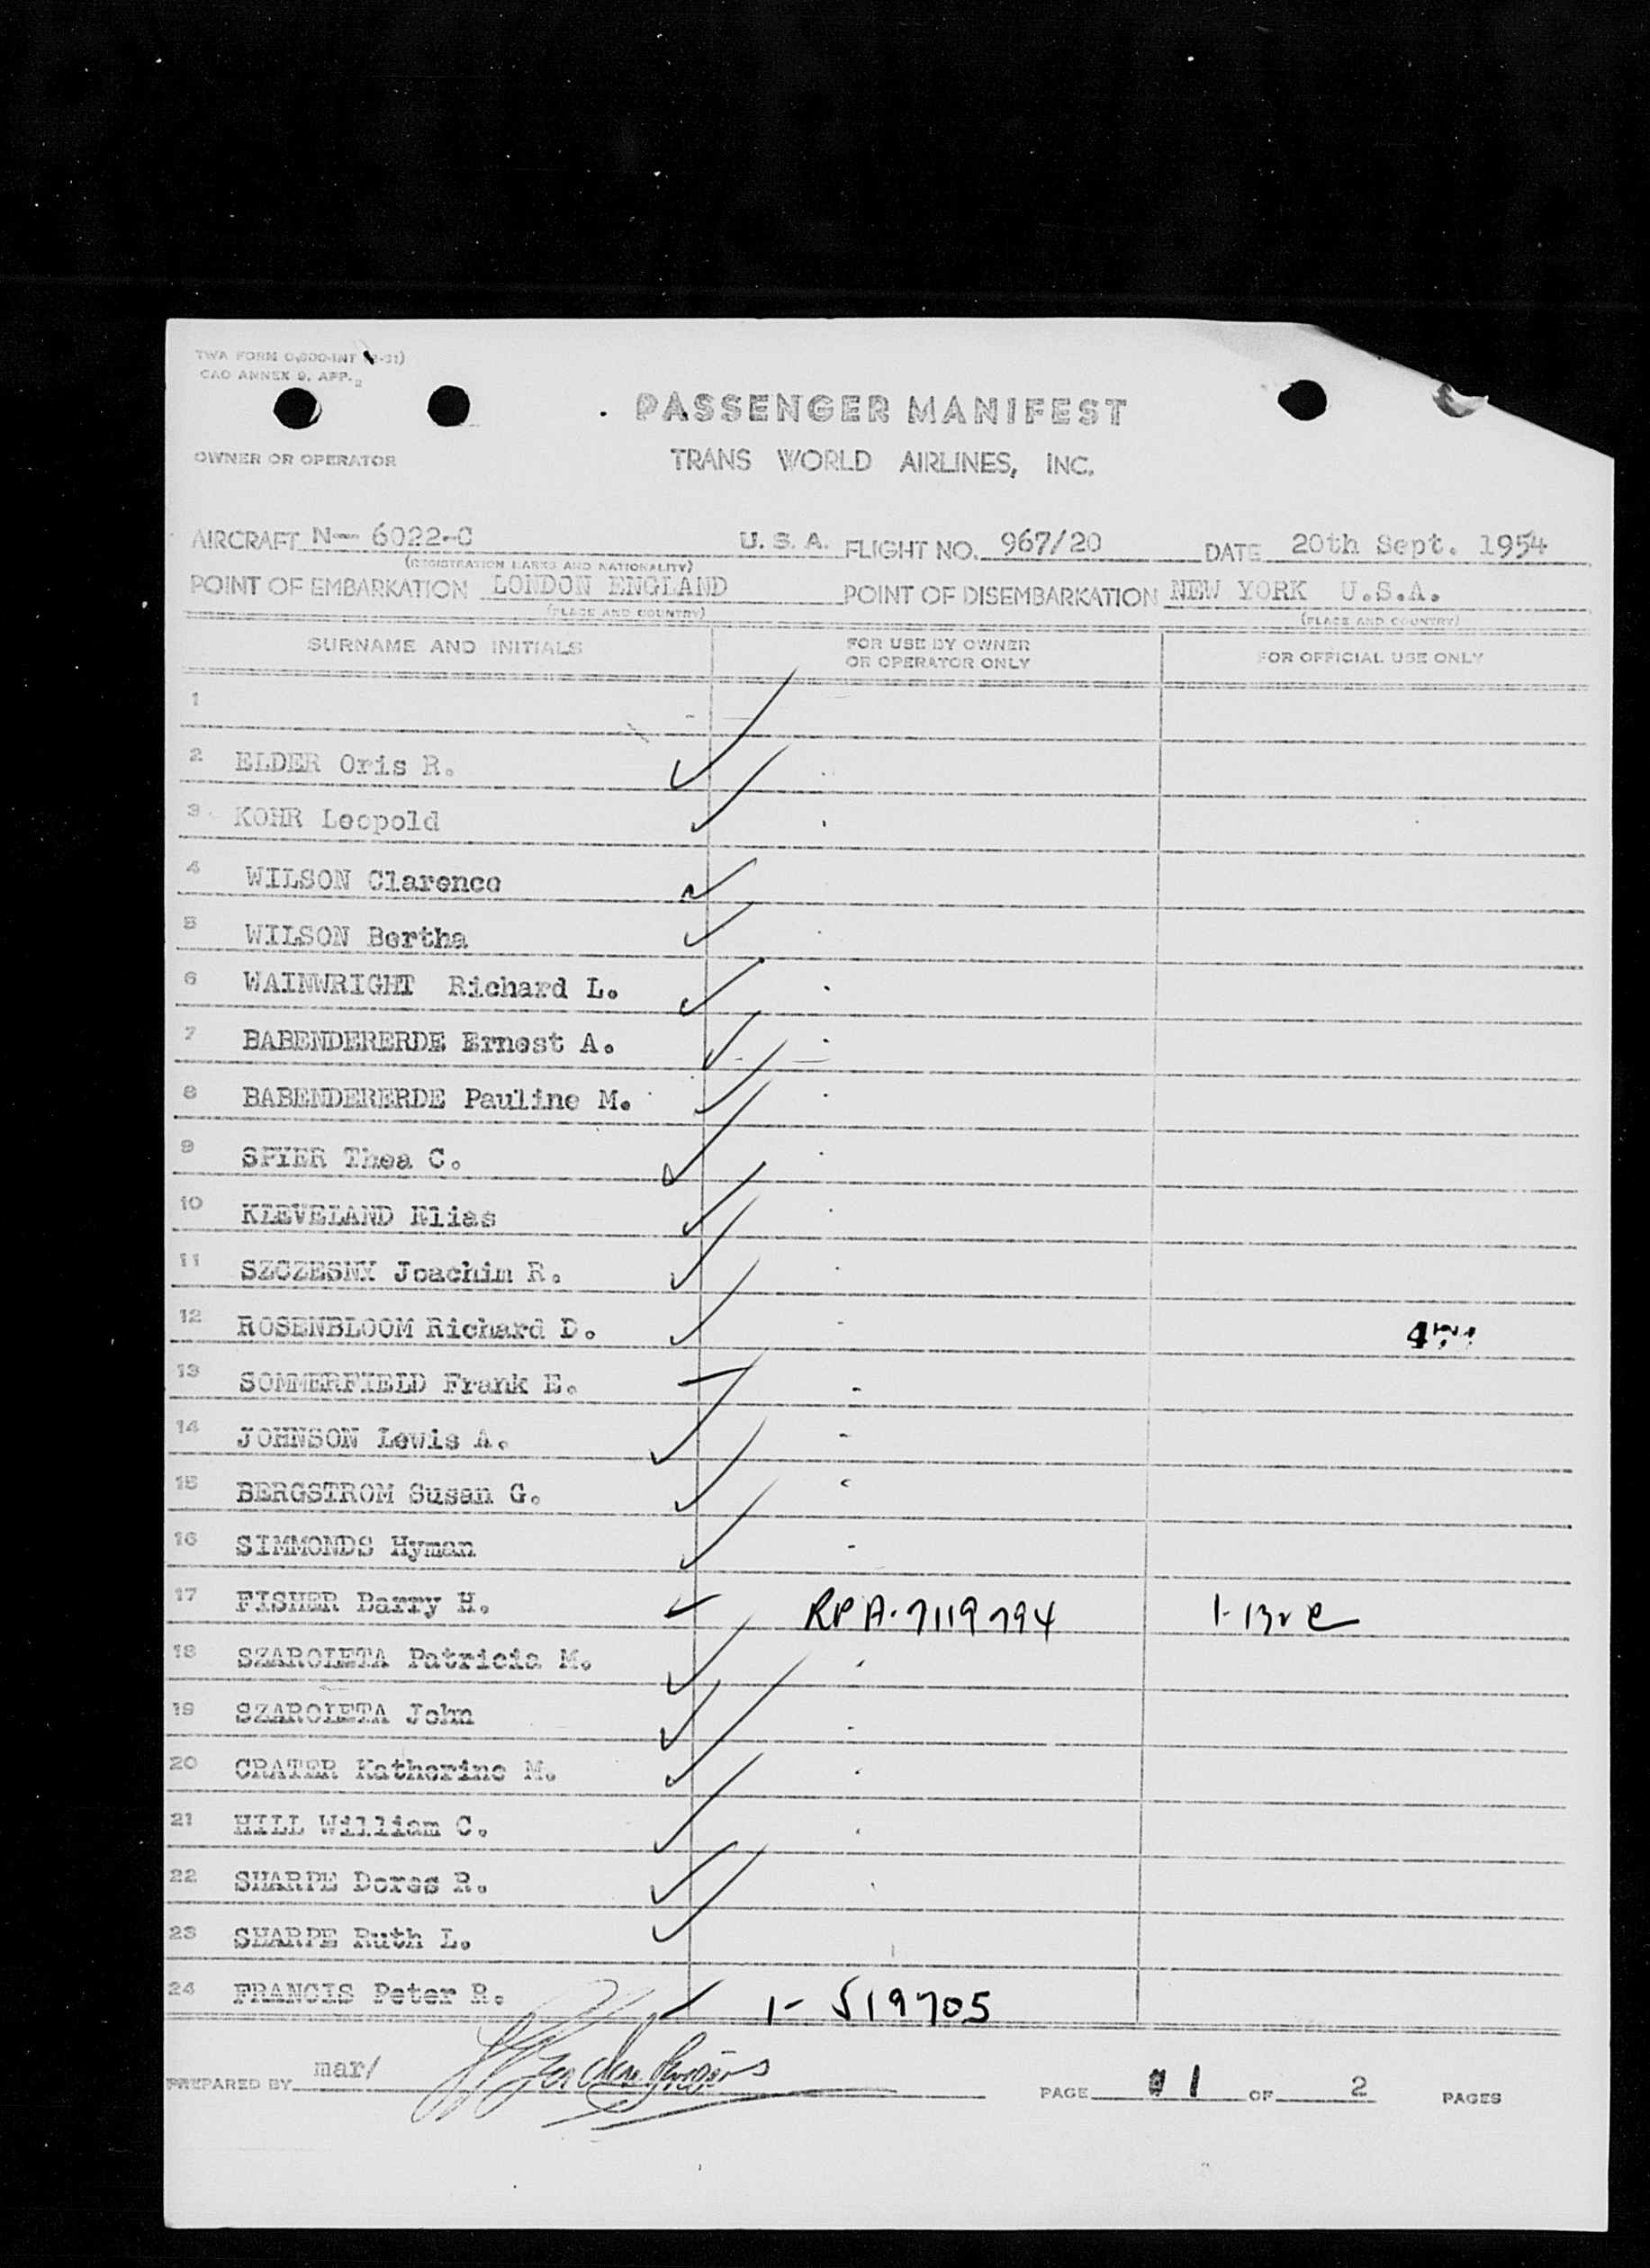 TWA FORM
CAO ANNEX 9, APP. 2
PASSENGER MANIFEST
OWNER OR OPERATOR
TRANS WORLD AIRLINES, INC.
AIRCRAFT N-- 6022-C U. S. A. FLIGHT NO. 967/20 DATE 20th Sept. 1954
(REGISTRATION MARKS AND NATIONALITY)
POINT OF EMBARKATION LONDON ENGLAND POINT OF DISEMBARKATION NEW YORK U.S.A.
(PLACE AND COUNTRY) (PLACE AND COUNTRY)
SURNAME AND INITIALS FOR USE BY OWNER OR OPERATOR ONLY FOR OFFICIAL USE ONLY
1
2 ELDER Oris R.
3 KOHR Leopold
4 WILSON Clarence
5 WILSON Bertha
6 WAINWRIGHT Richard L.
7 BABENDERERDE Ernest A.
8 BABENDERERDE Pauline M.
9 SPIER Thea C.
10 KLEVELAND Elias
11 SZCZESNY Joachim R.
12 ROSENBLOOM Richard D.
13 SOMMERFIELD Frank E.
14 JOHNSON Lewis A.
15 BERGSTROM Susan G.
16 SIMMONDS Hyman
17 FISHER Barry H. RP A-7119794
18 SZAROLETA Patricia M.
19 SZAROLETA John
20 CRATER Katherine M.
21 HILL William C.
22 SHARPE Dores R.
23 SHARPE Ruth L.
24 FRANCIS Peter R. 1- 519705
PREPARED BY mar/ PAGE 1 OF 2 PAGES